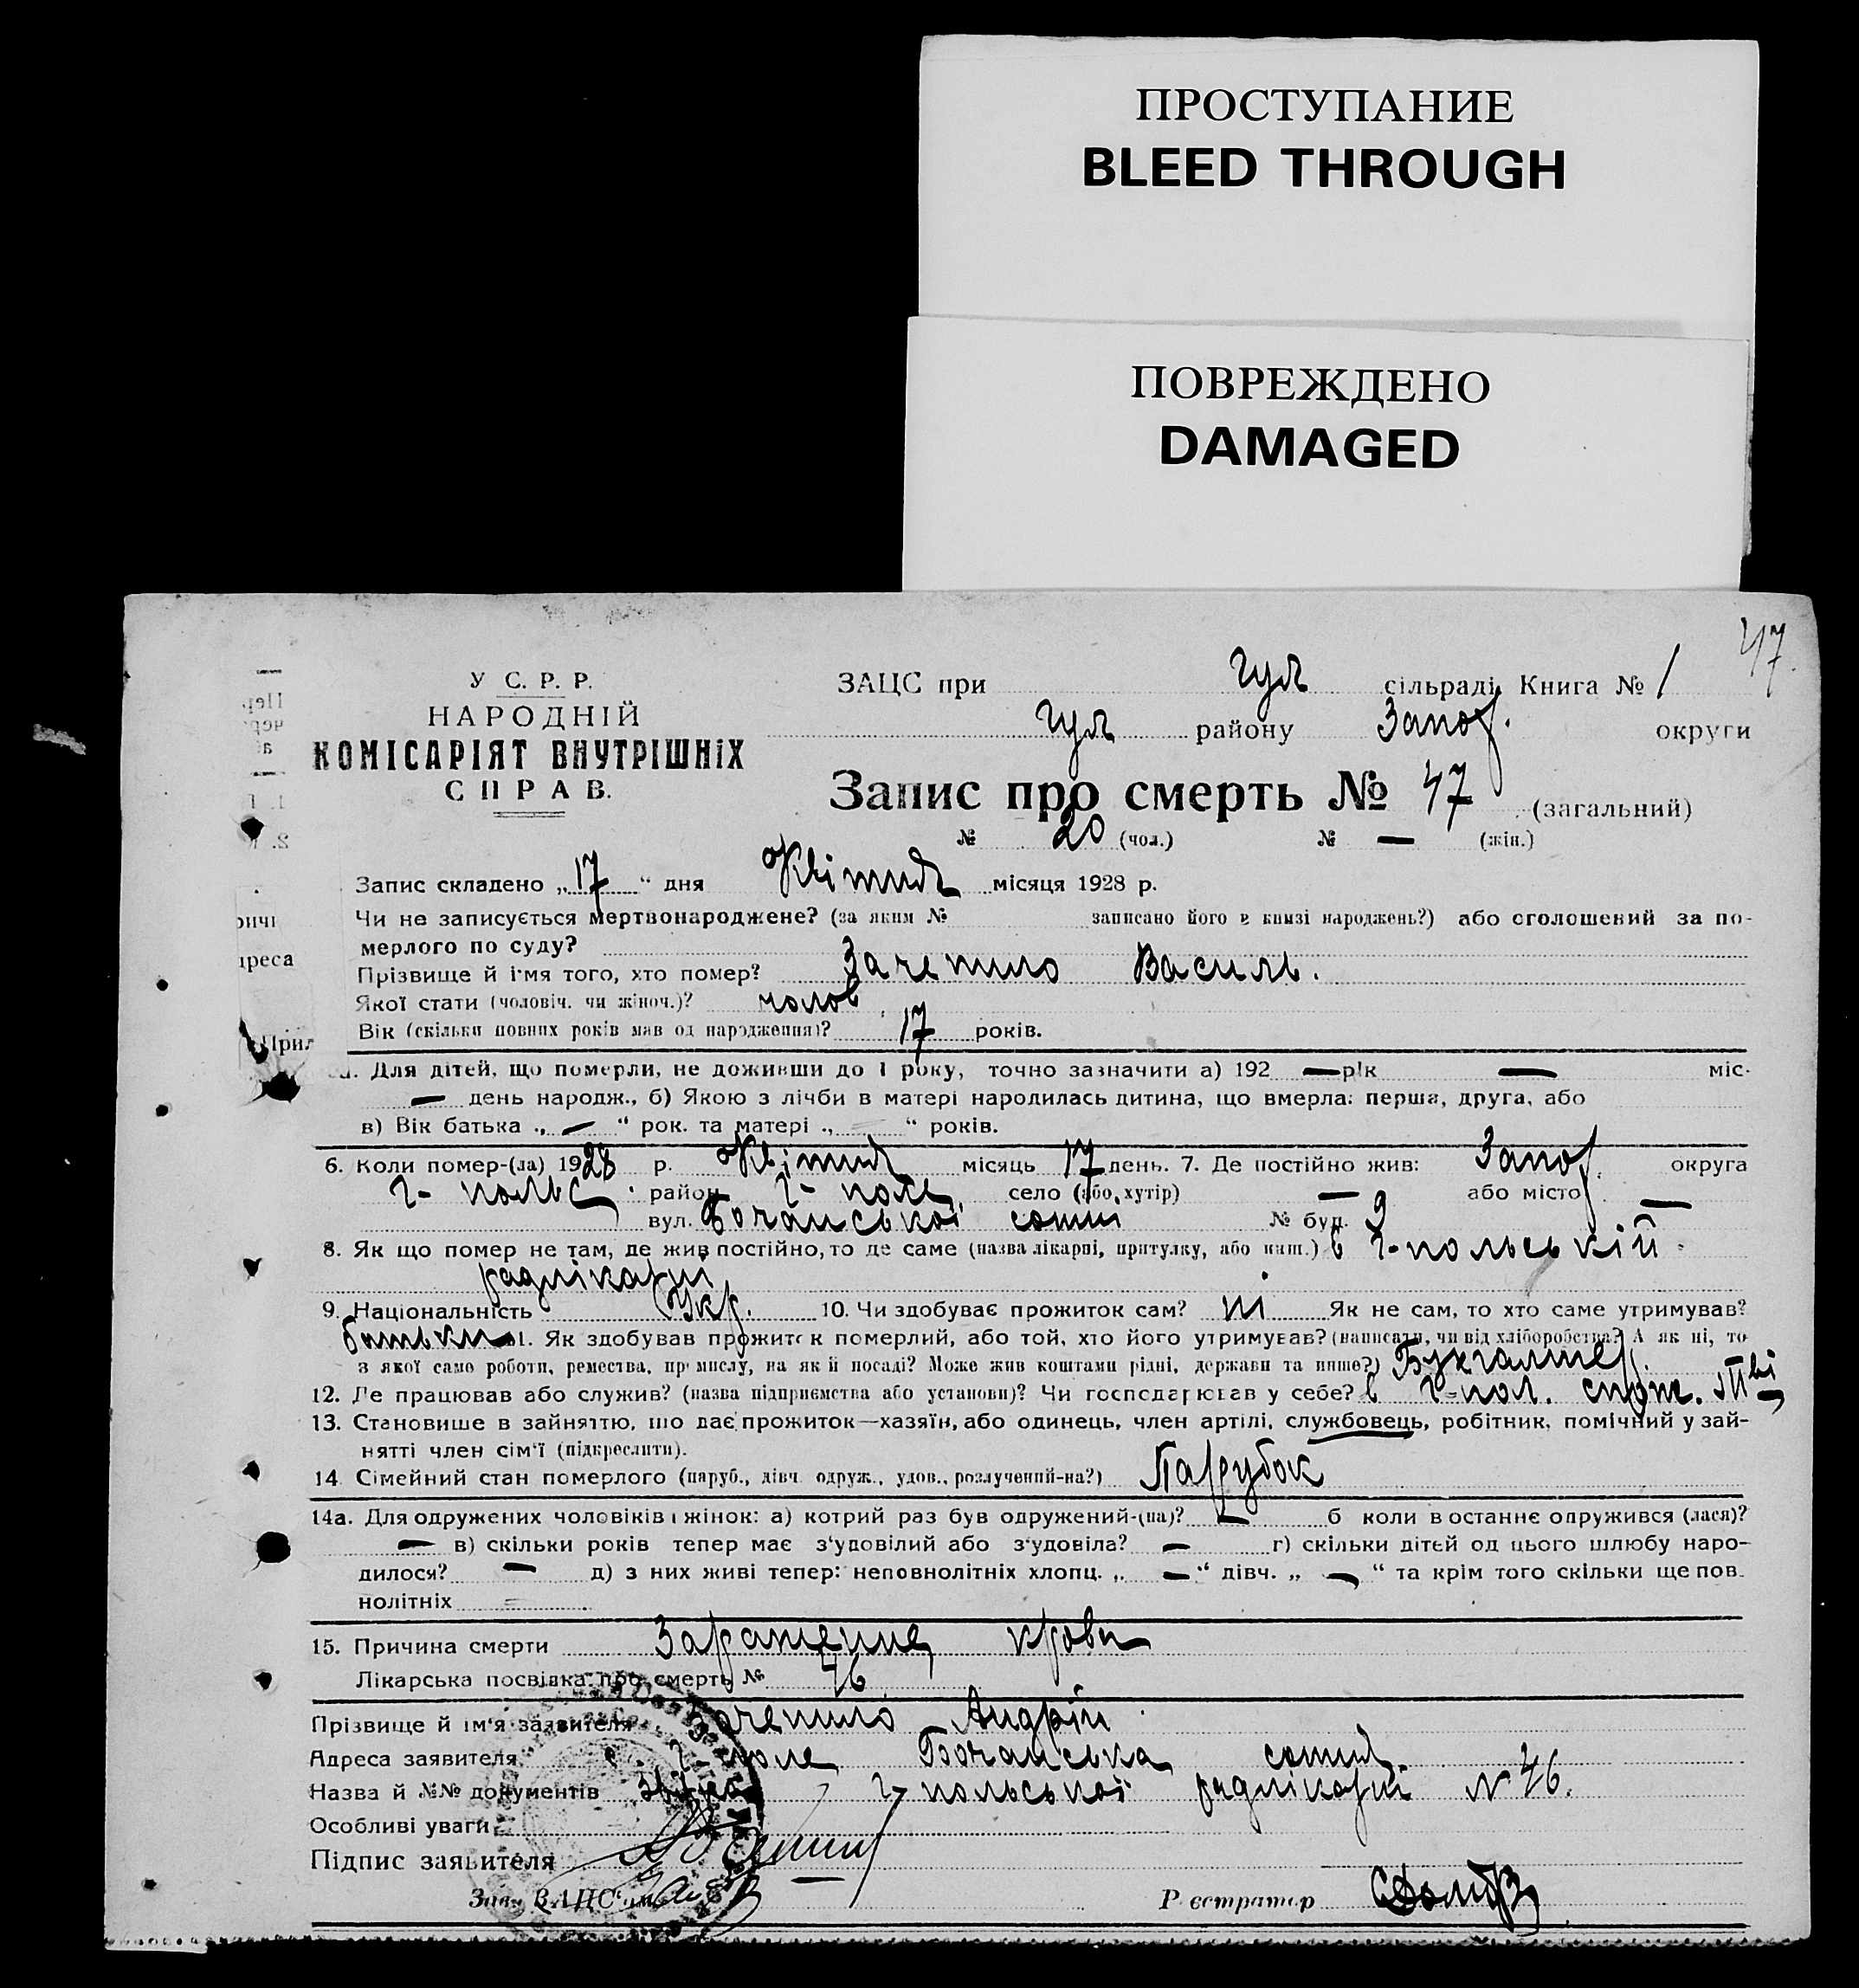 ПРОСТУПАНИЕ
BLEED THROUGH
ПОВРЕЖДЕНО
DAMAGED
47.
У С. Р. Р.
НАРОДНІЙ
КОМІСАРІЯТ ВНУТРІШНІХ
СПРАВ.
ЗАЦС при Гул сільраді Книга № 1
Гул району Запор. округи
Запис про смерть № 47 (загальний)
№ 20 (чол.) № — (жін.)
Запис складено „17“ дня Квітня місяця 1928 р.
Чи не записується мертвонароджене? (за яким № записано його в книзі народжень?) або оголошений за по-
мерлого по суду?
Прізвище й ім'я того, хто помер? Зачепило Василь.
Якої стати (чоловіч. чи жіноч.)? чолов
Вік (скільки повних років мав од народження)? 17 років.
Для дітей, що померли, не доживши до 1 року, точно зазначити а) 192 — рік — міс.
— день народж., б) Якою з лічби в матері народилась дитина, що вмерла: перша, друга, або
в) Вік батька „ — “ рок. та матері „ — “ років.
6. Коли помер-(ла) 1928 р. Квітня місяць 17 день. 7. Де постійно жив: Запор. округа
Г-польс. район Г-поле село (або хутір) — або місто —
вул. Бочанської сотні № буд. 9
8. Як що помер не там, де жив постійно, то де саме (назва лікарні, притулку, або инш.) в Г-польській
радлікарні
9. Національність Укр. 10. Чи здобуває прожиток сам? ні Як не сам, то хто саме утримував?
батьки 11. Як здобував прожиток померлий, або той, хто його утримував? (написати, чи від хліборобства? А як ні, то
з якої само роботи, ремества, промислу, на якій посаді? Може жив коштами рідні, держави та инше?) Бухгалтер.
12. Де працював або служив? (назва підприємства або установи)? Чи господарював у себе? в Г-пол. спож. т-ві
13. Становише в зайняттю, що дає прожиток—хазяїн, або одинець, член артілі, службовець, робітник, помічний у зай-
нятті член сім'ї (підкреслити).
14. Сімейний стан померлого (паруб., дівч. одруж., удов., розлучений-на?) Парубок
14а. Для одружених чоловіків і жінок: а) котрий раз був одружений-(на)? — б коли востаннє одружився (лася)?
— в) скільки років тепер має з'удовілий або з'удовіла? — г) скільки дітей од цього шлюбу наро-
дилося? — д) з них живі тепер: неповнолітніх хлопц. „ — “ дівч. „ — “ та крім того скільки ще пов-
нолітніх
15. Причина смерти Зараженне крови
Лікарська посвідка про смерть № 46
Прізвище й ім'я заявителя Зачепило Андрій
Адреса заявителя с. Г-поле Бочанська сотня
Назва й №№ документів Г-польської радлікарні № 46.
Особливі уваги
Підпис заявителя
Зав. ЗАЦС'ом
Реєстратор